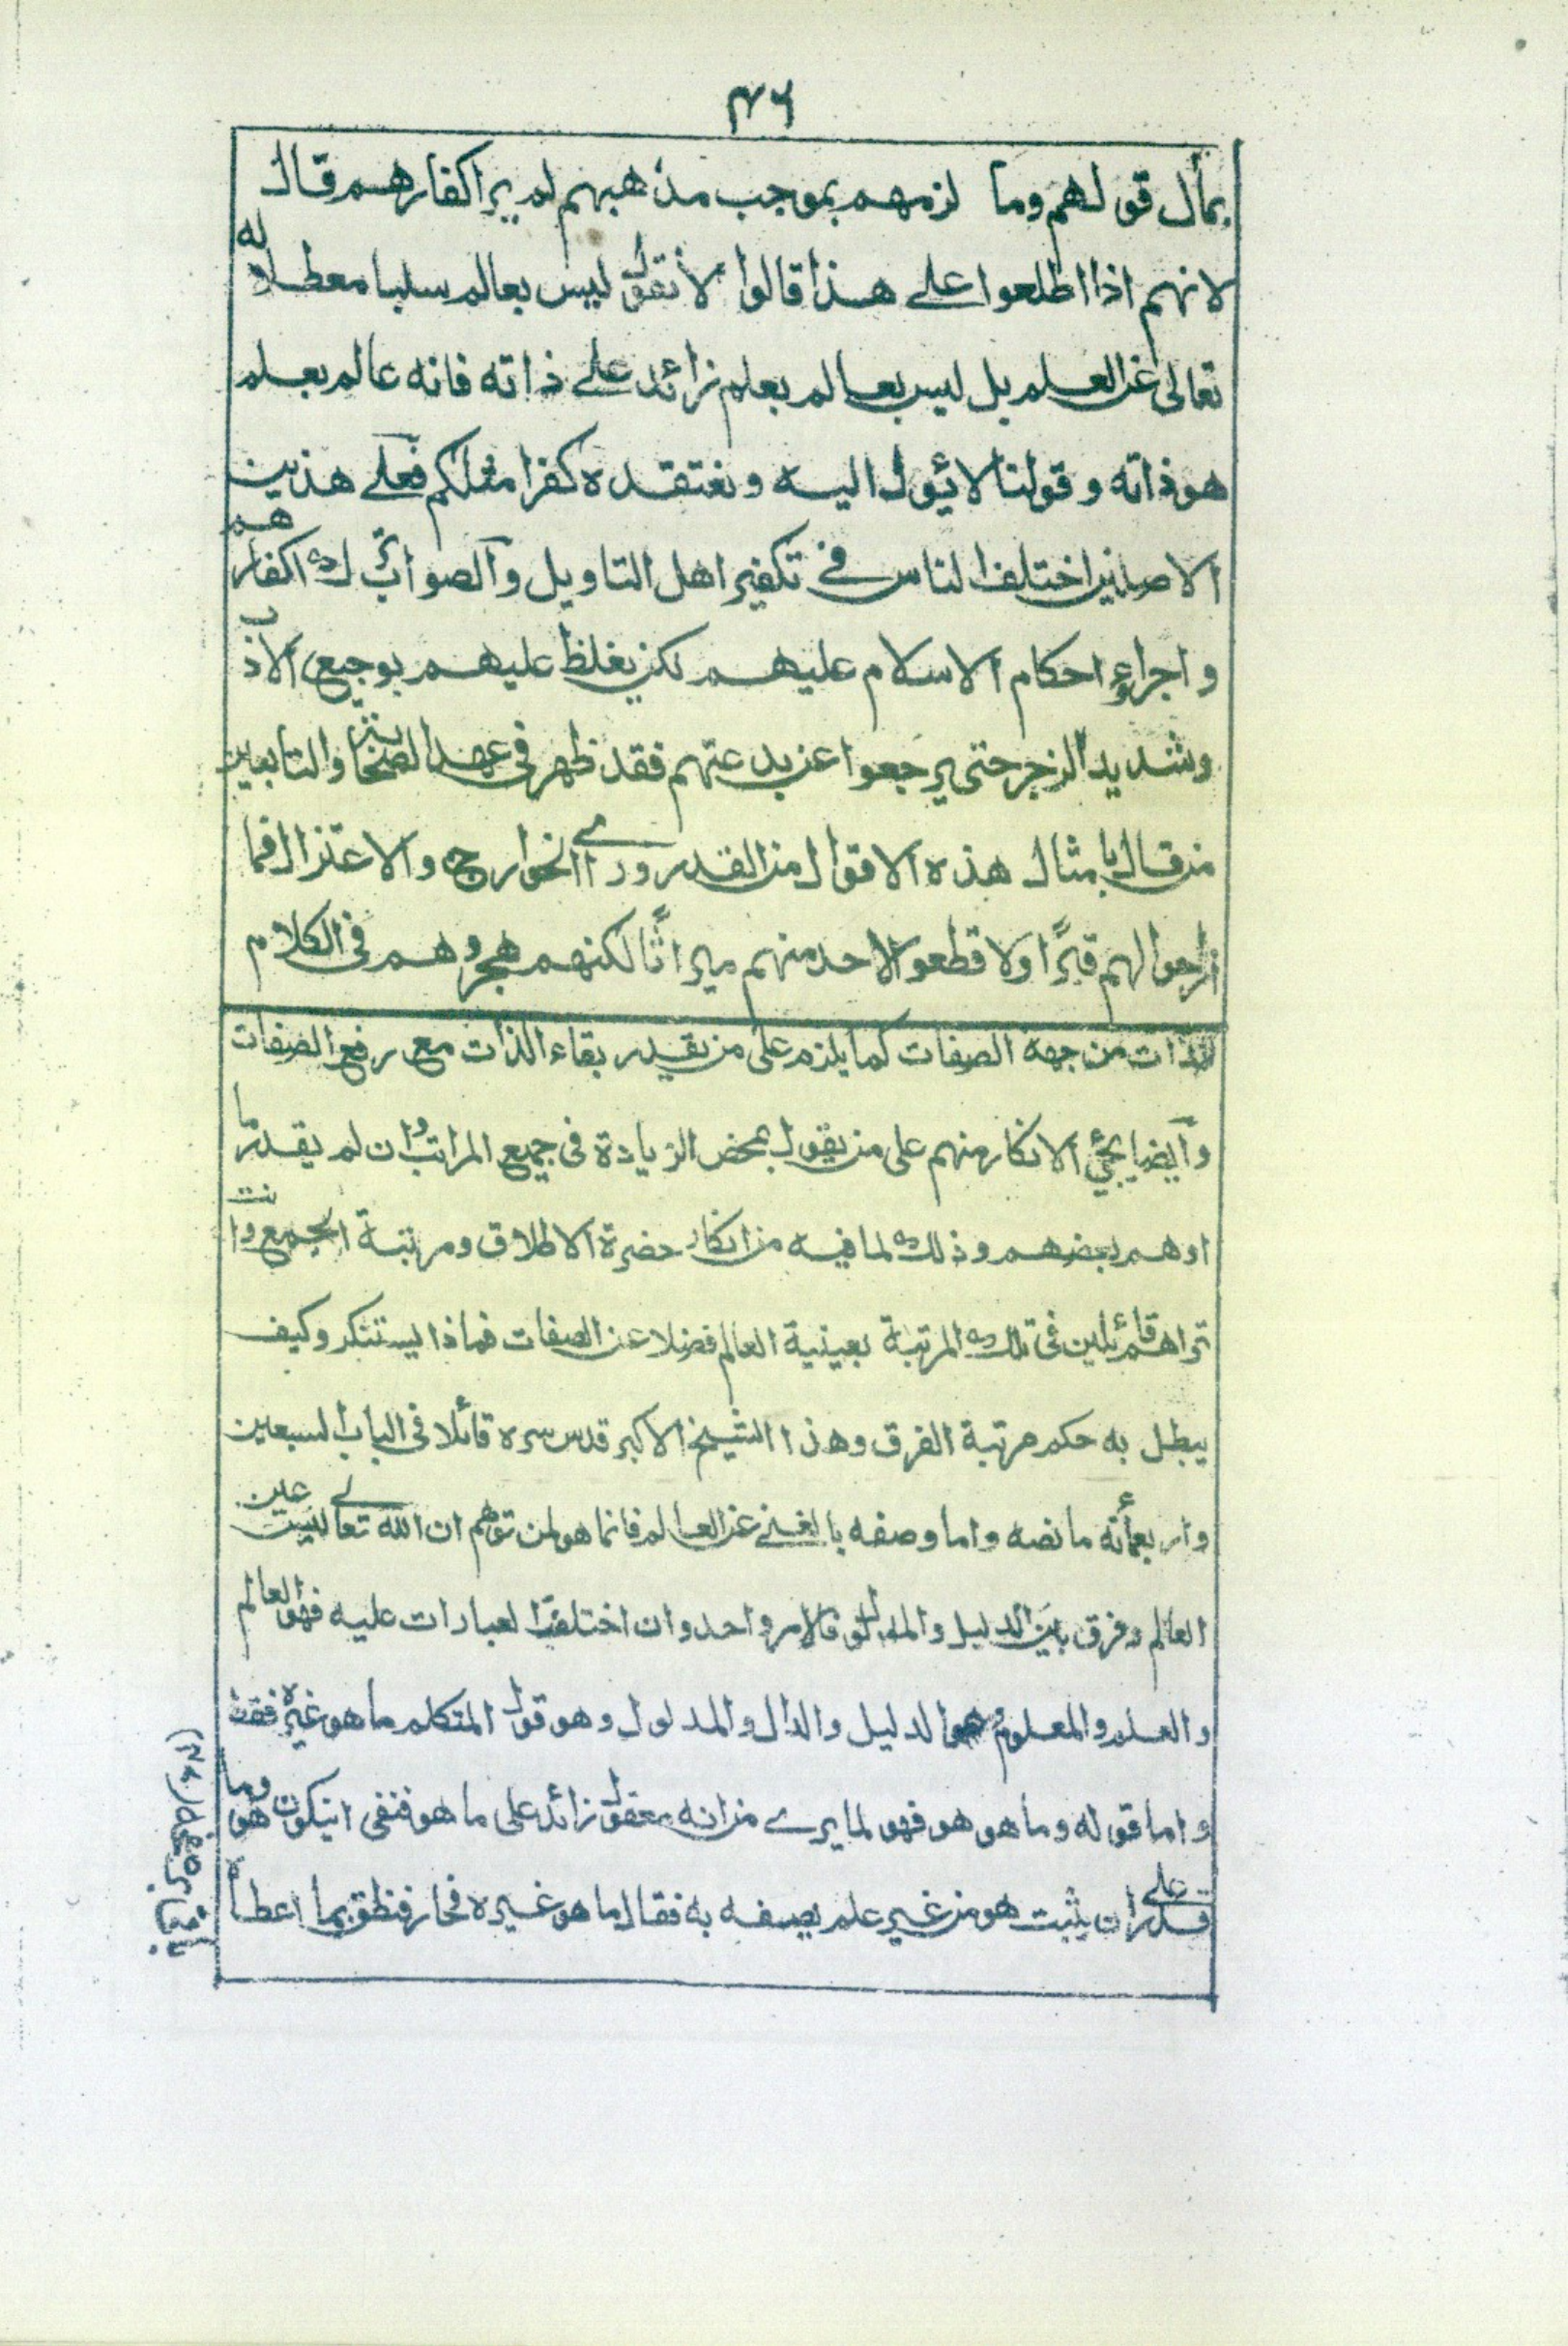 ٤٦
بمأل قولهم وما لزمهم بموجب مذهبهم لم ير اكفارهم قال
لانهم اذا اطلعوا على هذا قالوا لا نقول ليس بعالم سلبا معطلا له
تعالى عن العلم بل ليس بعالم بعلم زائد على ذاته فانه عالم بعلم
هو ذاته وقولنا لا يئول اليه ونعتقده كفرا مثلكم فعلى هذين
الاصلين اختلف الناس في تكفير اهل التاويل والصواب ترك اكفارهم
واجراء احكام الاسلام عليهم لكن يغلظ عليهم بوجيع الادب
وشديد الزجر حتى يرجعوا عن بدعتهم فقد ظهر فى عهد الصحابة والتابعين
من قال بامثال هذه الاقوال من القدر وراى الخوارج والاعتزال فما
ازاحوا لهم قبرًا ولا قطعوا لاحد منهم ميراثًا لكنهم هجروهم فى الكلام
للذات من جهة الصفات كما يلزم على من يقدر بقاء الذات مع رفع الصفات
وايضا يجئ الانكار منهم على من يقول بمحض الزيادة فى جميع المراتب وان لم يقدر ما
اوهم بعضهم وذلك لما فيه من انكار حضرة الاطلاق ومرتبة الجمع وانت
تراهم قائلين فى تلك المرتبة بعينية العالم فضلا عن الصفات فماذا يستنكر وكيف
يبطل به حكم مرتبة الفرق وهذا الشيخ الاكبر قدس سره قائلا فى الباب السبعين
واربعمأئة ما نصه واما وصفه بالغنى عن العالم فانما هو لمن توهم ان الله تعالى ليس عين
العالم وفرق بين الدليل والمدلول فالامر واحد وان اختلفت العبارات عليه فهو العالم
والعلم والمعلوم وهو الدليل والدال والمدلول وهو قول المتكلم ما هو غيره فقط
واما قوله وما هو هو فهو لما يرى من انه معقول زائد على ما هو فنفى ان يكون هو وما
قدر على ان يثبت هو من غير علم يصفه به فقال ما هو غيره فحار فنطق بما اعطاه